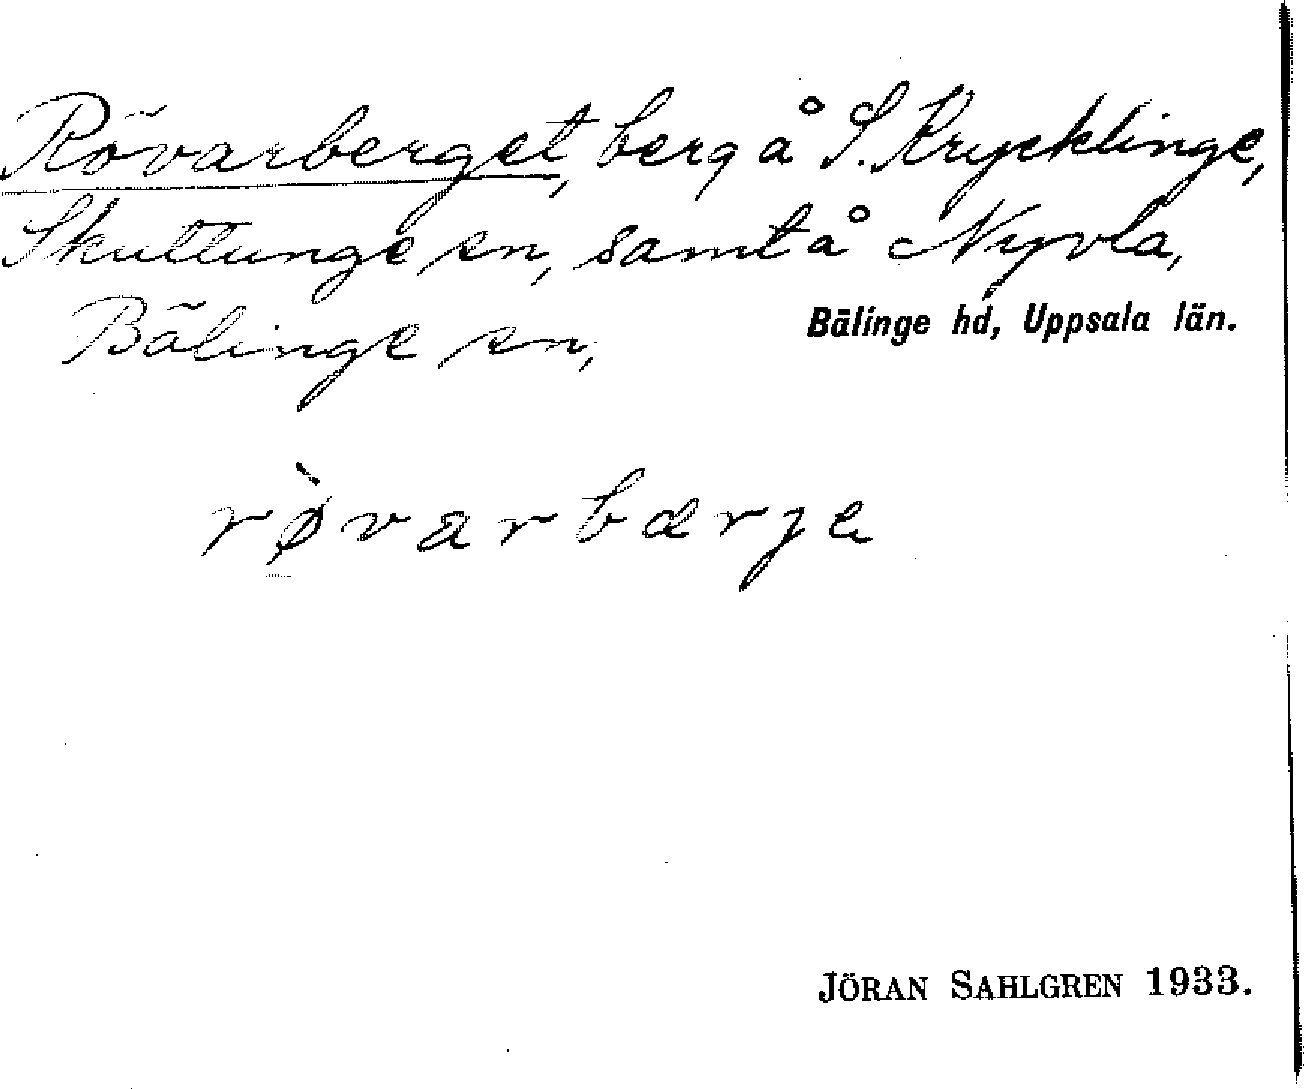 Rövarberget, berg å S. Krycklinge,
Skuttunge sn, samt å Nyvla,
Bälinge sn,
Bälinge hd, Uppsala län.
rø̀varbærja
JÖRAN SAHLGREN 1933.